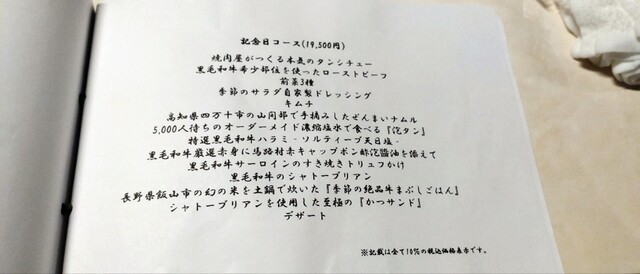 記念日コース(19,500円)
焼肉屋がつくる本気のタンシチュー
黒毛和牛希少部位を使ったローストビーフ
前菜3種
季節のサラダ自家製ドレッシング
キムチ
高知県四万十市の山間部で手摘みしたぜんまいナムル
5,000人待ちのオーダーメイド濃縮塩水で食べる『泡タン』
特選黒毛和牛ハラミ - ソルティーブ天日塩-
黒毛和牛厳選赤身に馬路村赤キャップポン酢泡醤油を添えて
黒毛和牛サーロインのすき焼きトリュフかけ
黒毛和牛のシャトーブリアン
長野県飯山市の幻の米を土鍋で炊いた『季節の絶品牛まぶしごはん』
シャトーブリアンを使用した至極の『かつサンド』
デザート
※記載は全て10%の税込価格表示です。